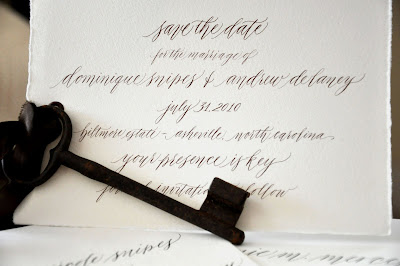 save the date
for the marriage of
dominique snipes & andrew delaney
july 31, 2010
biltmore estate ~ asheville, north carolina
your presence is key
follow
snipes